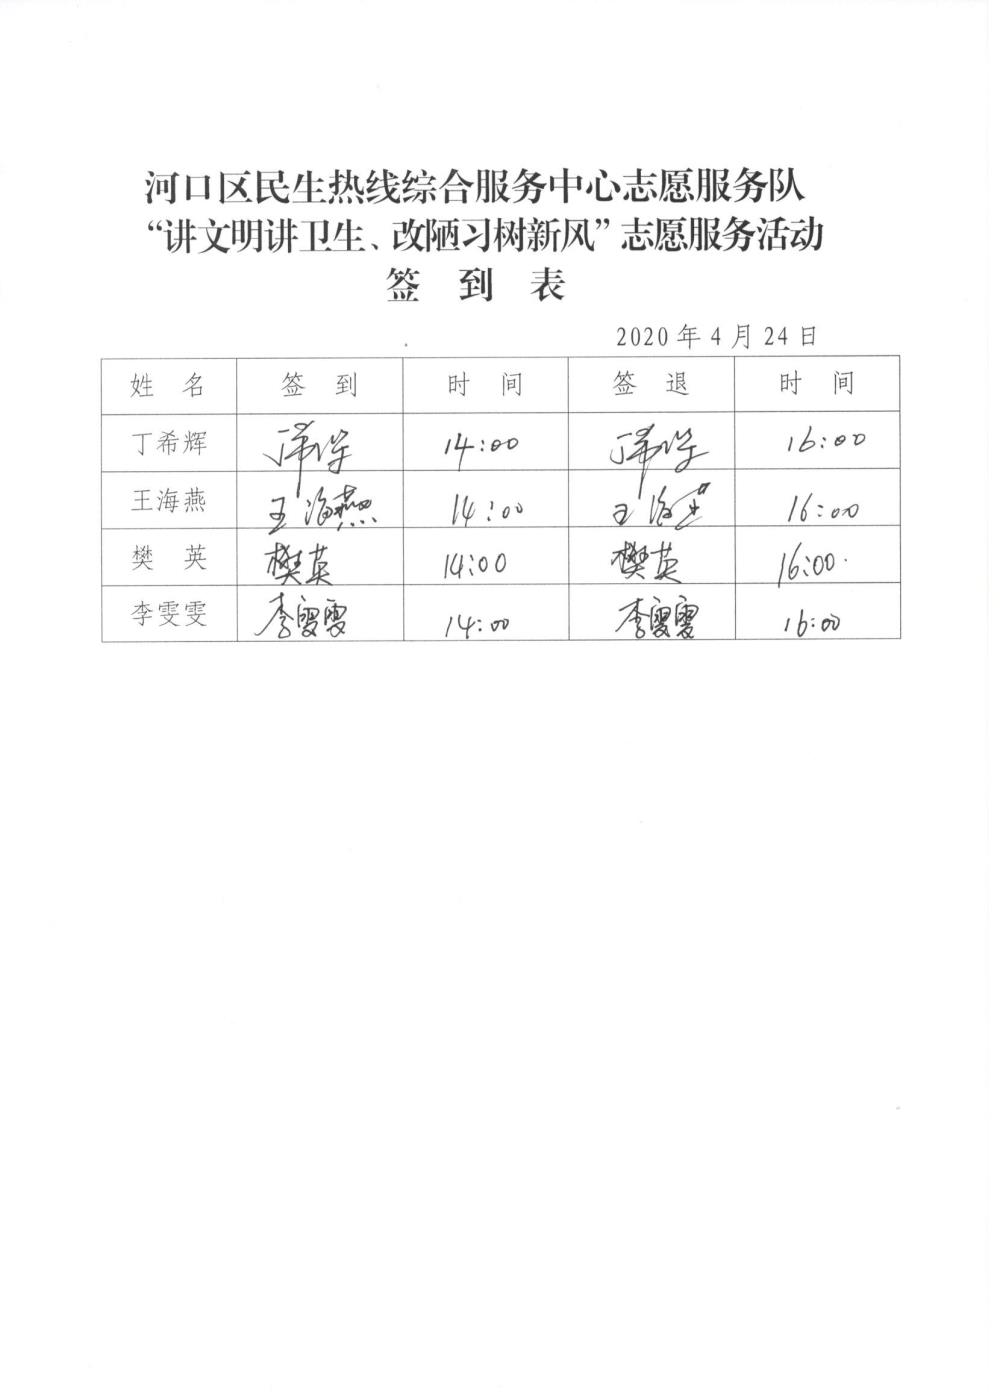 河口区民生热线综合服务中心志愿服务队
“讲文明讲卫生、改陋习树新风”志愿服务活动
签 到 表
2020年4月24日
姓 名 签 到 时 间 签 退 时 间
丁希辉 丁希辉 14:00 丁希辉 16:00
王海燕 王海燕 14:00 王海燕 16:00
樊 英 樊英 14:00 樊英 16:00.
李雯雯 李雯雯 14:00 李雯雯 16:00